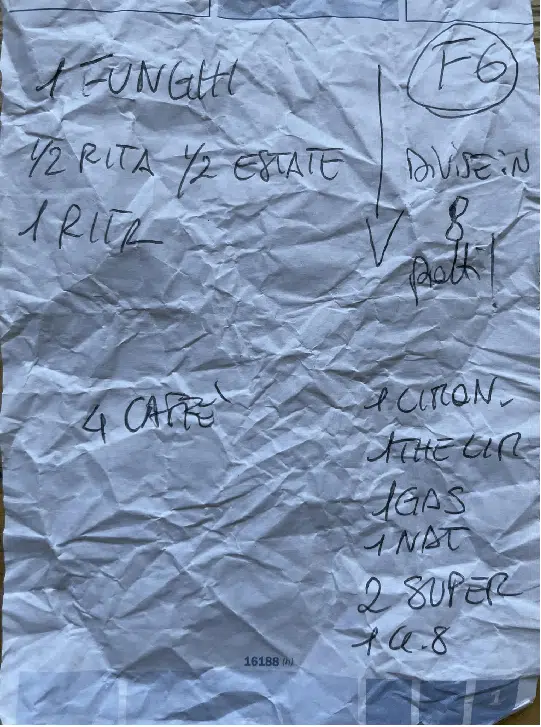 F6
1 FUNGHI
1/2 RITA 1/2 ESTATE
1 RITR
DIVISE IN
8
1 CITRON.
4 CAFFE'
1 THE LIR
1 GAS
1 NAT
2 SUPER
16188